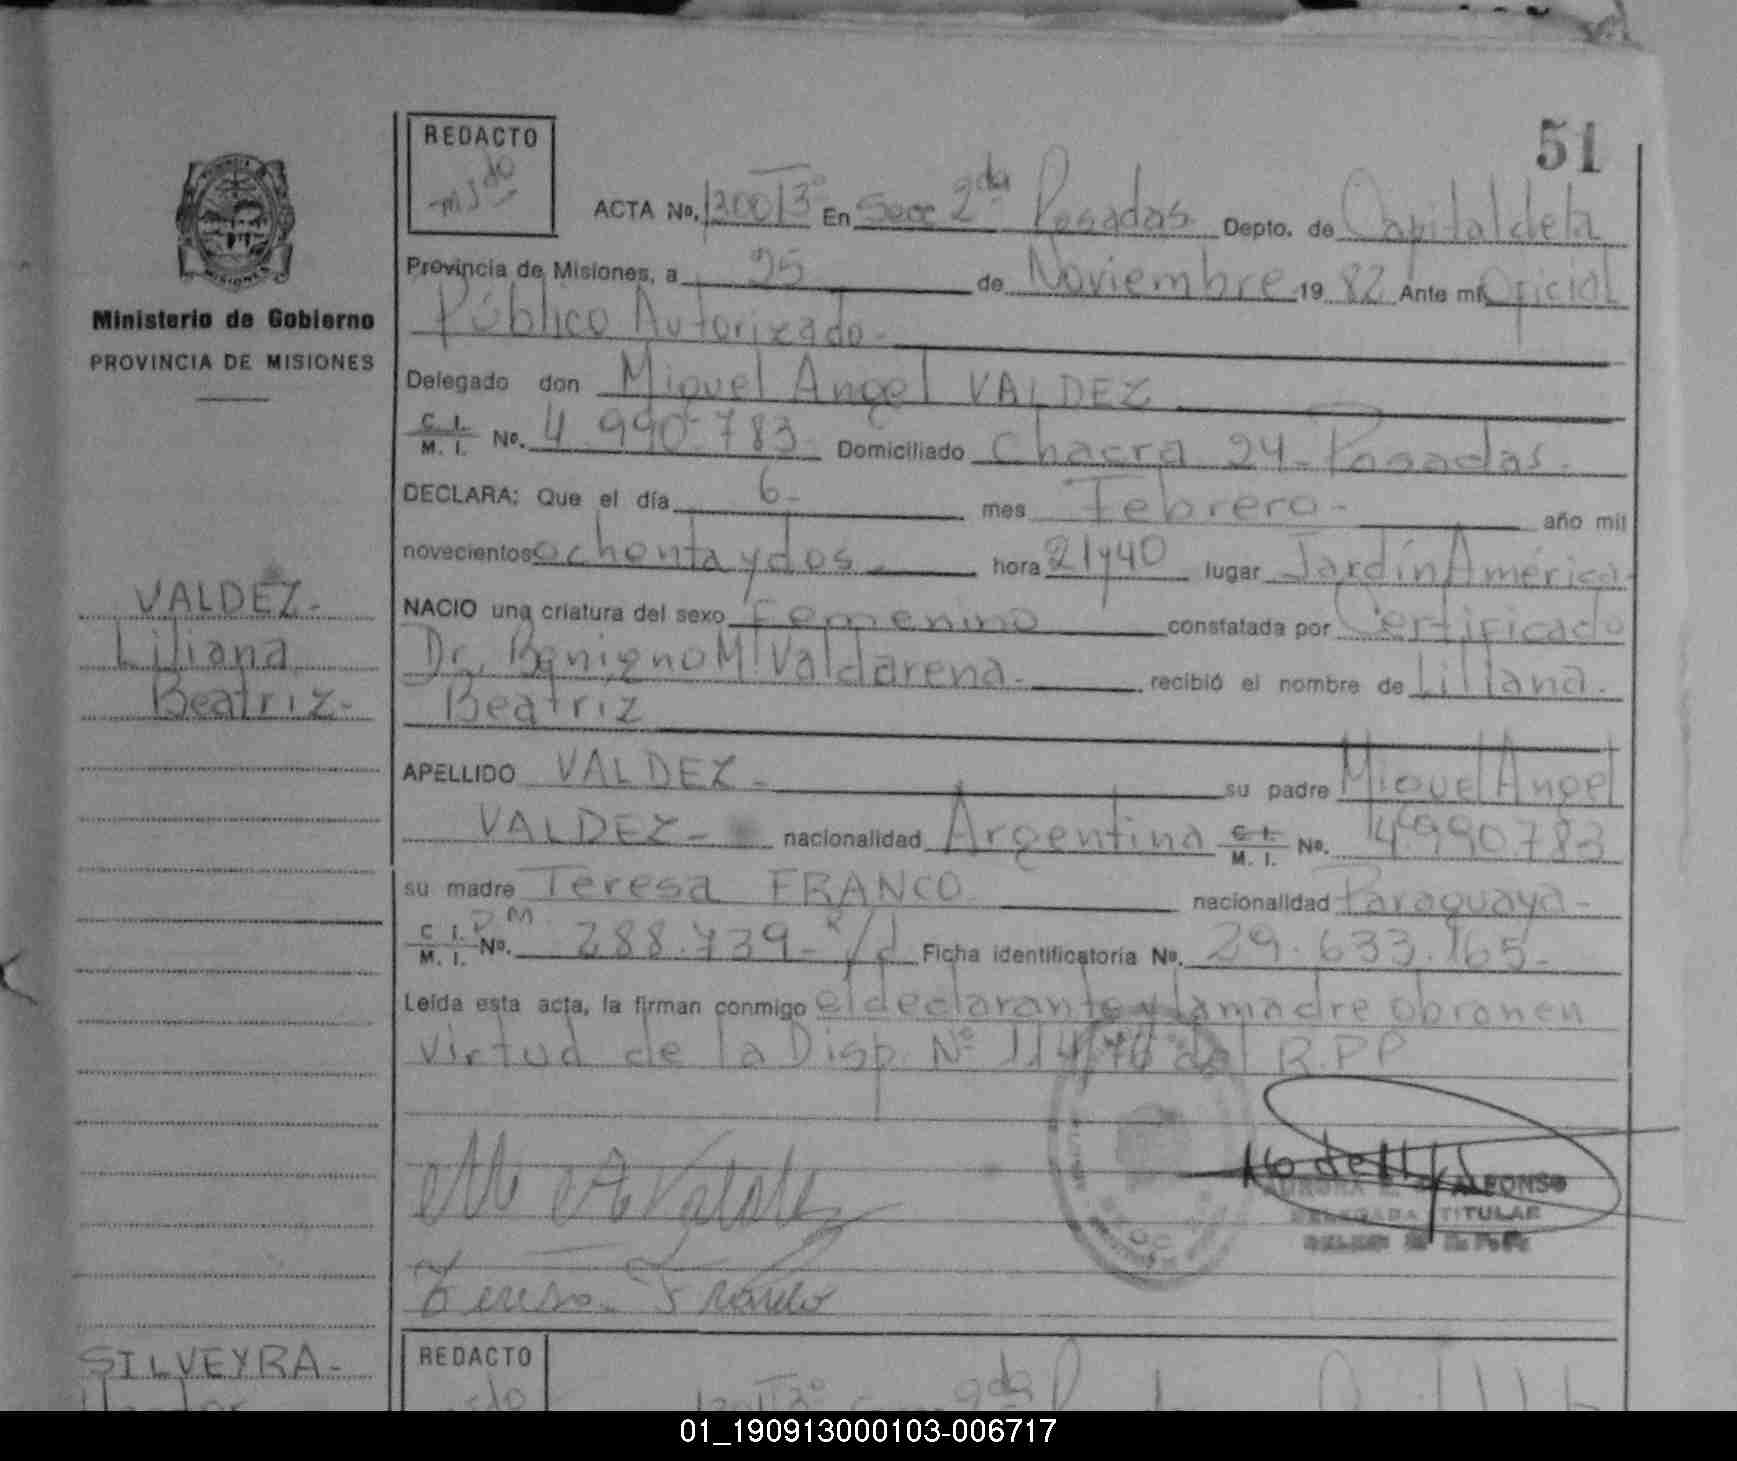 51
REDACTO
ACTA No. En Secc 2da Posadas Depto. de Capital de la
Provincia de Misiones, a 25 de Noviembre 19 82 Ante mi Oficial
Público Autorizado.-
Ministerio de Gobierno
PROVINCIA DE MISIONES
Delegado don Miguel Angel VALDEZ
C. I. M. I. No. 4.990.783 Domiciliado Chacra 24 - Posadas.
DECLARA: Que el día 6- mes Febrero - año mil
novecientos ochenta y dos. hora 21 y 40 lugar Jardín América.
NACIO una criatura del sexo Femenino constatada por Certificado
Dr. Benigno M. Valdarena. recibió el nombre de Liliana.
Beatriz
VALDEZ-
Liliana
Beatriz-
APELLIDO VALDEZ - su padre Miguel Angel
VALDEZ - nacionalidad Argentina C. I. M. I. No. 4.990.783
su madre Teresa FRANCO nacionalidad Paraguaya -
C. I. M. I. No. 288.739- Ficha identificatoria No. 29.633.165-
Leída esta acta, la firman conmigo el declarante y la madre obron en
virtud de la Disp. Nº del R.P.P
ALFONSO
DELEGADA TITULAR
Teresa Franco
SILVEYRA-
REDACTO
01_190913000103-006717